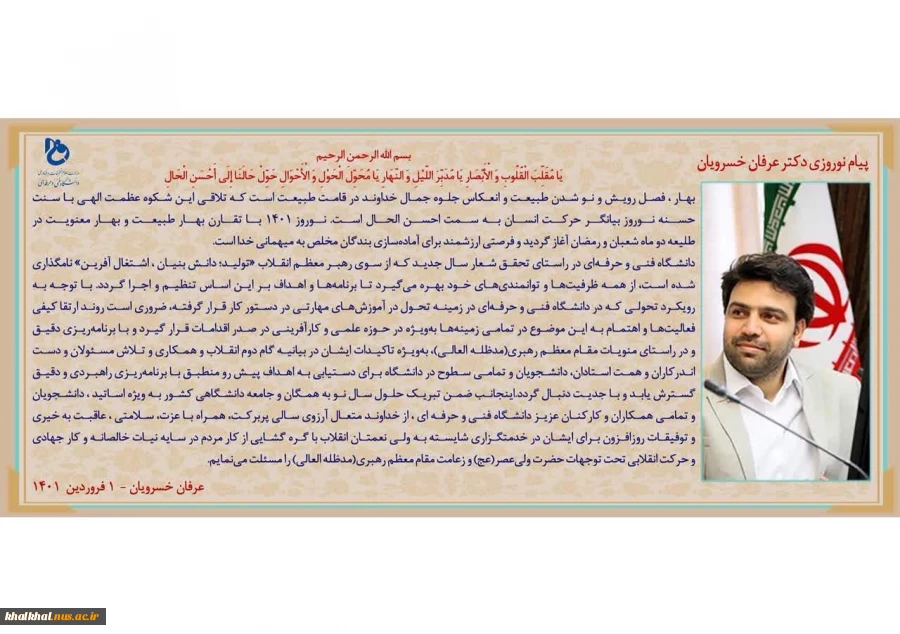 پیام نوروزی دکتر عرفان خسرویان
بسم الله الرحمن الرحیم
یَا مُقَلِّبَ الْقُلُوبِ وَ الْأَبْصَارِ یَا مُدَبِّرَ اللَّیْلِ وَ النَّهَارِ یَا مُحَوِّلَ الْحَوْلِ وَ الْأَحْوَالِ حَوِّلْ حَالَنَا إِلَى أَحْسَنِ الْحَالِ
بهار ، فصل رویش و نو شدن طبیعت و انعکاس جلوه جمال خداوند در قامت طبیعت است که تلاقی این شکوه عظمت الهی با سنت
حسنه نوروز بیانگر حرکت انسان به سمت احسن الحال است. نوروز ۱۴۰۱ با تقارن بهار طبیعت و بهار معنویت در
طلیعه دو ماه شعبان و رمضان آغاز گردید و فرصتی ارزشمند برای آماده‌سازی بندگان مخلص به میهمانی خدا است.
دانشگاه فنی و حرفه‌ای در راستای تحقق شعار سال جدید که از سوی رهبر معظم انقلاب «تولید؛ دانش بنیان ، اشتغال آفرین» نامگذاری
شده است، از همه ظرفیت‌ها و توانمندی‌های خود بهره می‌گیرد تا برنامه‌ها و اهداف بر این اساس تنظیم و اجرا گردد. با توجه به
رویکرد تحولی که در دانشگاه فنی و حرفه‌ای در زمینه تحول در آموزش‌های مهارتی در دستور کار قرار گرفته، ضروری است روند ارتقا کیفی
فعالیت‌ها و اهتمام به این موضوع در تمامی زمینه‌ها به‌ویژه در حوزه علمی و کارآفرینی در صدر اقدامات قرار گیرد و با برنامه‌ریزی دقیق
و در راستای منویات مقام معظم رهبری(مدظله العالی)، به‌ویژه تاکیدات ایشان در بیانیه گام دوم انقلاب و همکاری و تلاش مسئولان و دست
اندرکاران و همت استادان، دانشجویان و تمامی سطوح در دانشگاه برای دستیابی به اهداف پیش رو منطبق با برنامه‌ریزی راهبردی و دقیق
گسترش یابد و با جدیت دنبال گردد.اینجانب ضمن تبریک حلول سال نو به همگان و جامعه دانشگاهی کشور به ویژه اساتید ، دانشجویان
و تمامی همکاران و کارکنان عزیز دانشگاه فنی و حرفه ای ، از خداوند متعال آرزوی سالی پربرکت، همراه با عزت، سلامتی ، عاقبت به خیری
و توفیقات روزافزون برای ایشان در خدمتگزاری شایسته به ولی نعمتان انقلاب با گره گشایی از کار مردم در سایه نیات خالصانه و کار جهادی
و حرکت انقلابی تحت توجهات حضرت ولی‌عصر(عج) و زعامت مقام معظم رهبری(مدظله العالی) را مسئلت می‌نمایم.
عرفان خسرویان - ۱ فروردین ۱۴۰۱
khalkhal.nus.ac.ir